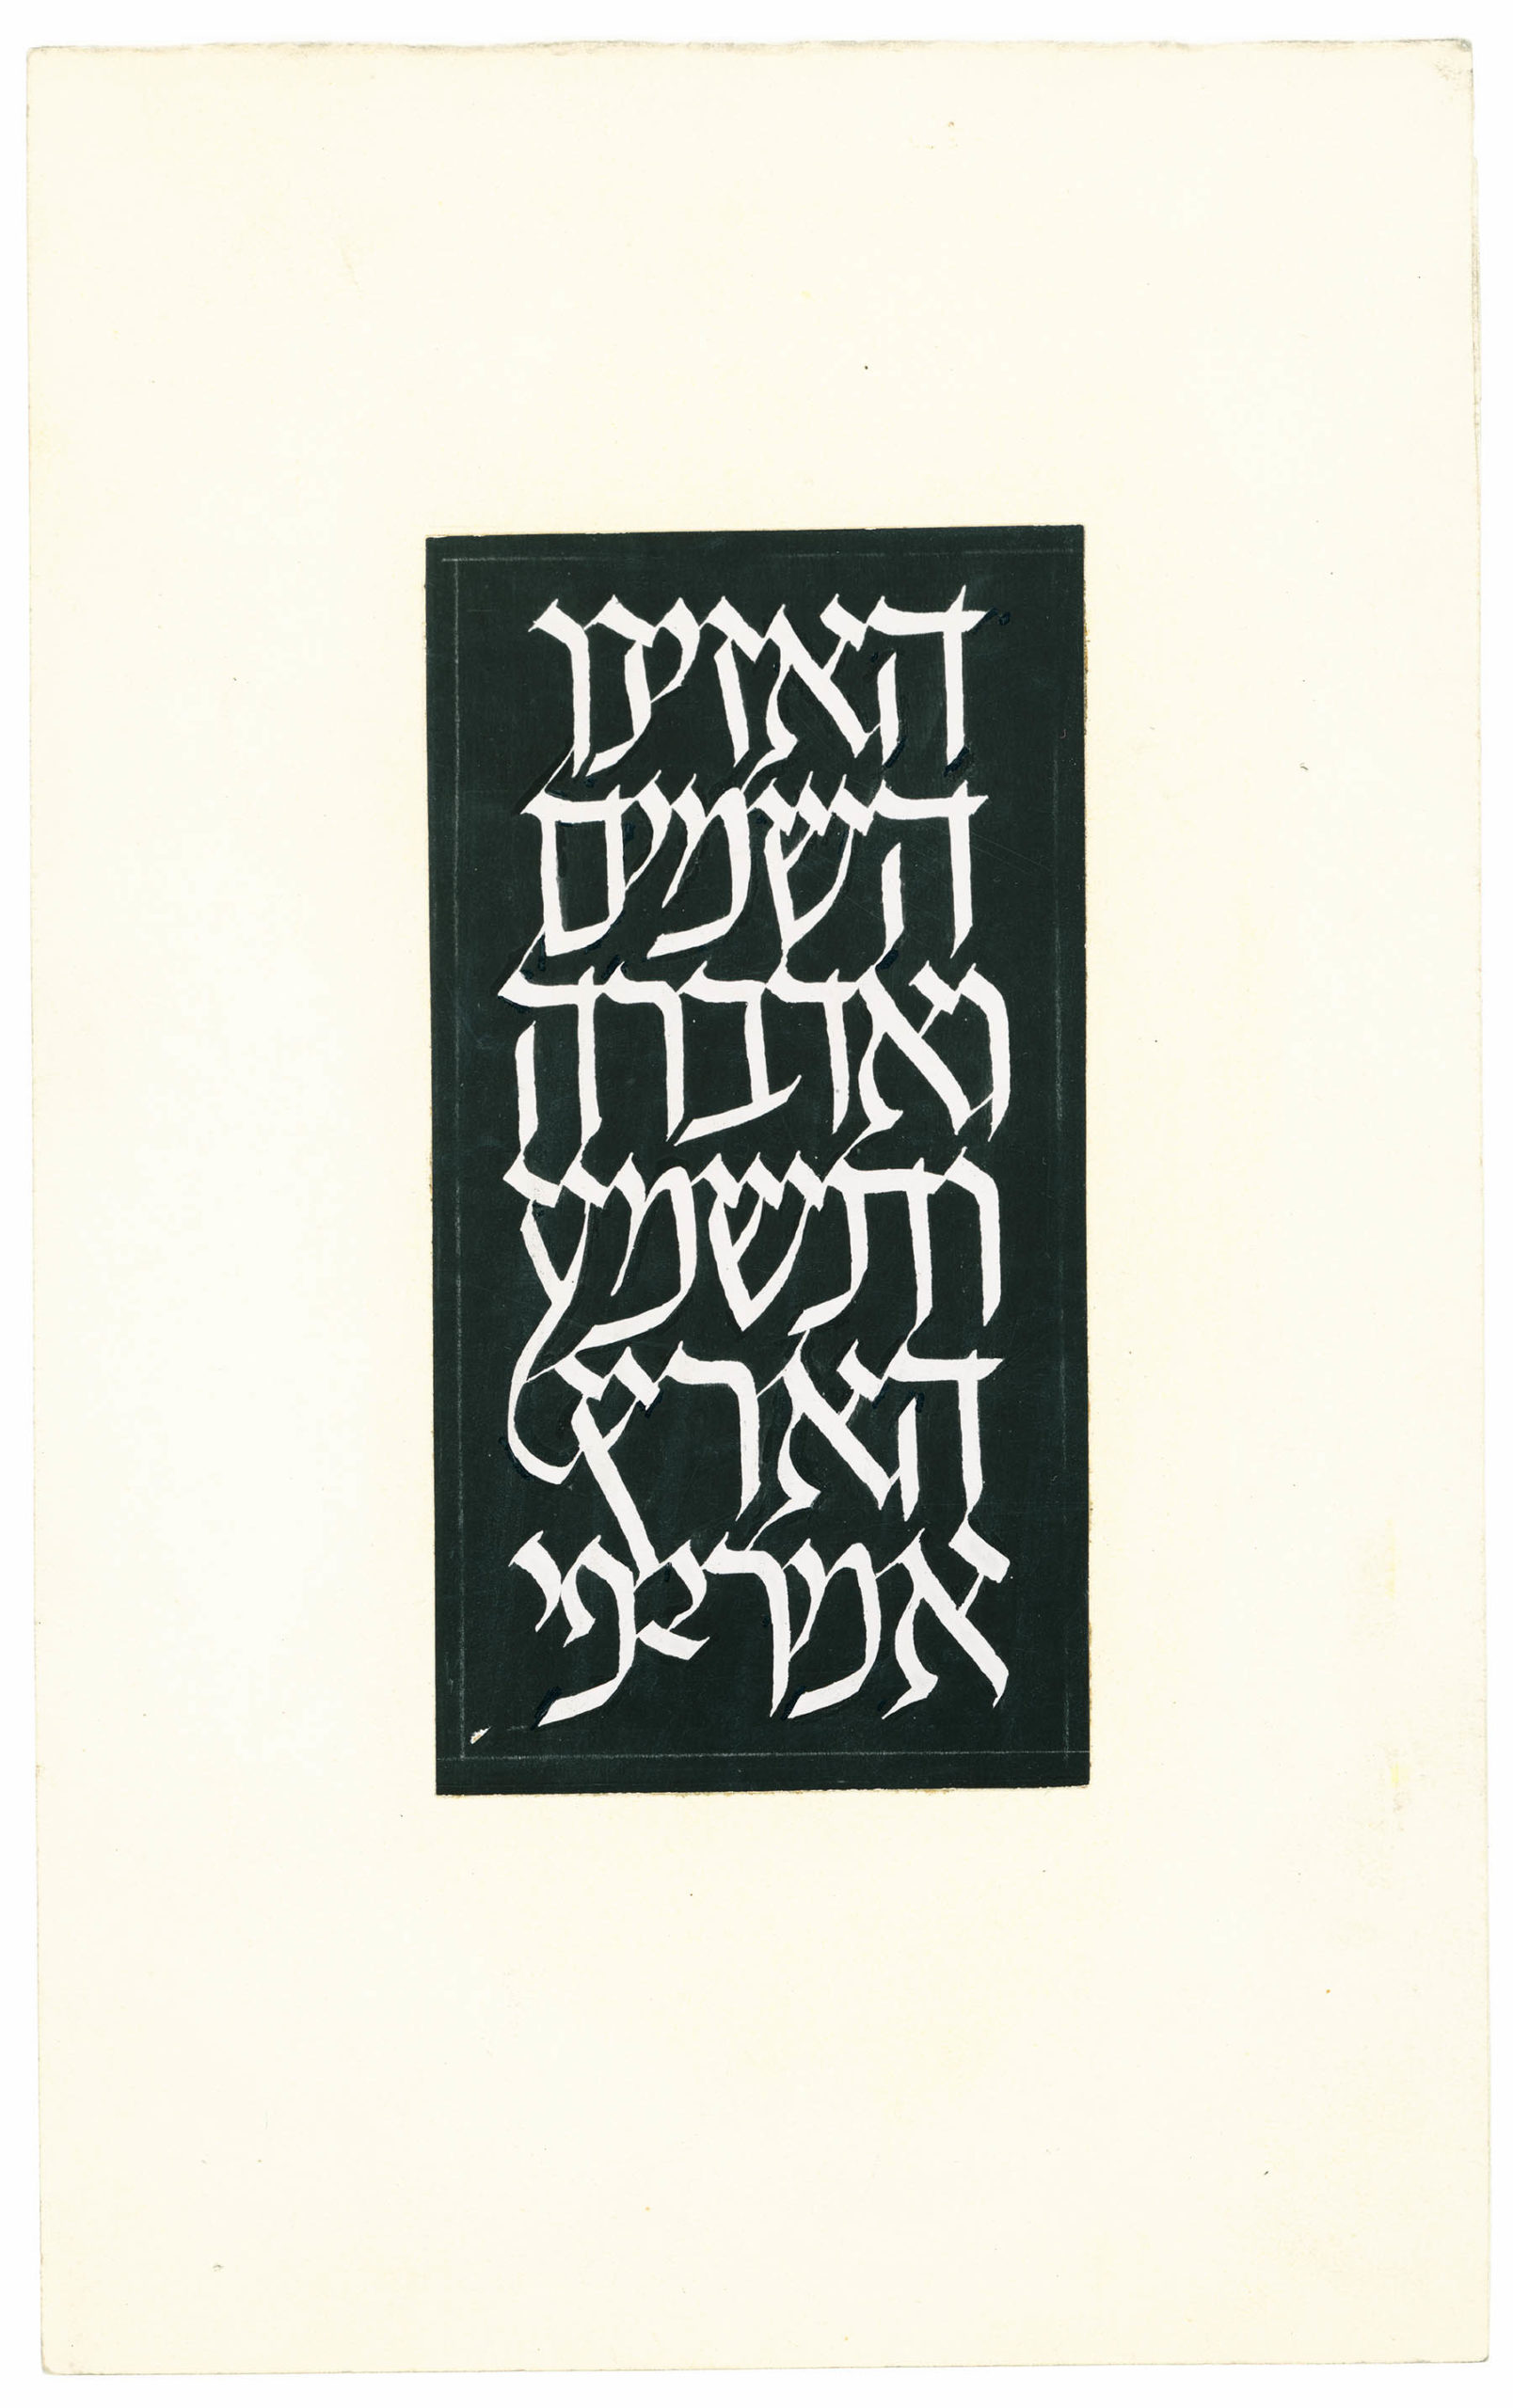 האזינו
השמים
ואדברה
ותשמע
הארץ
אמרי פי